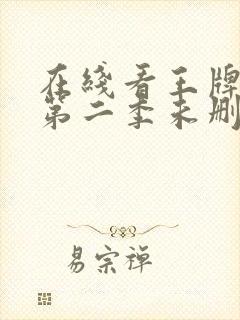 在线看王牌
第二季未删
易宗禅